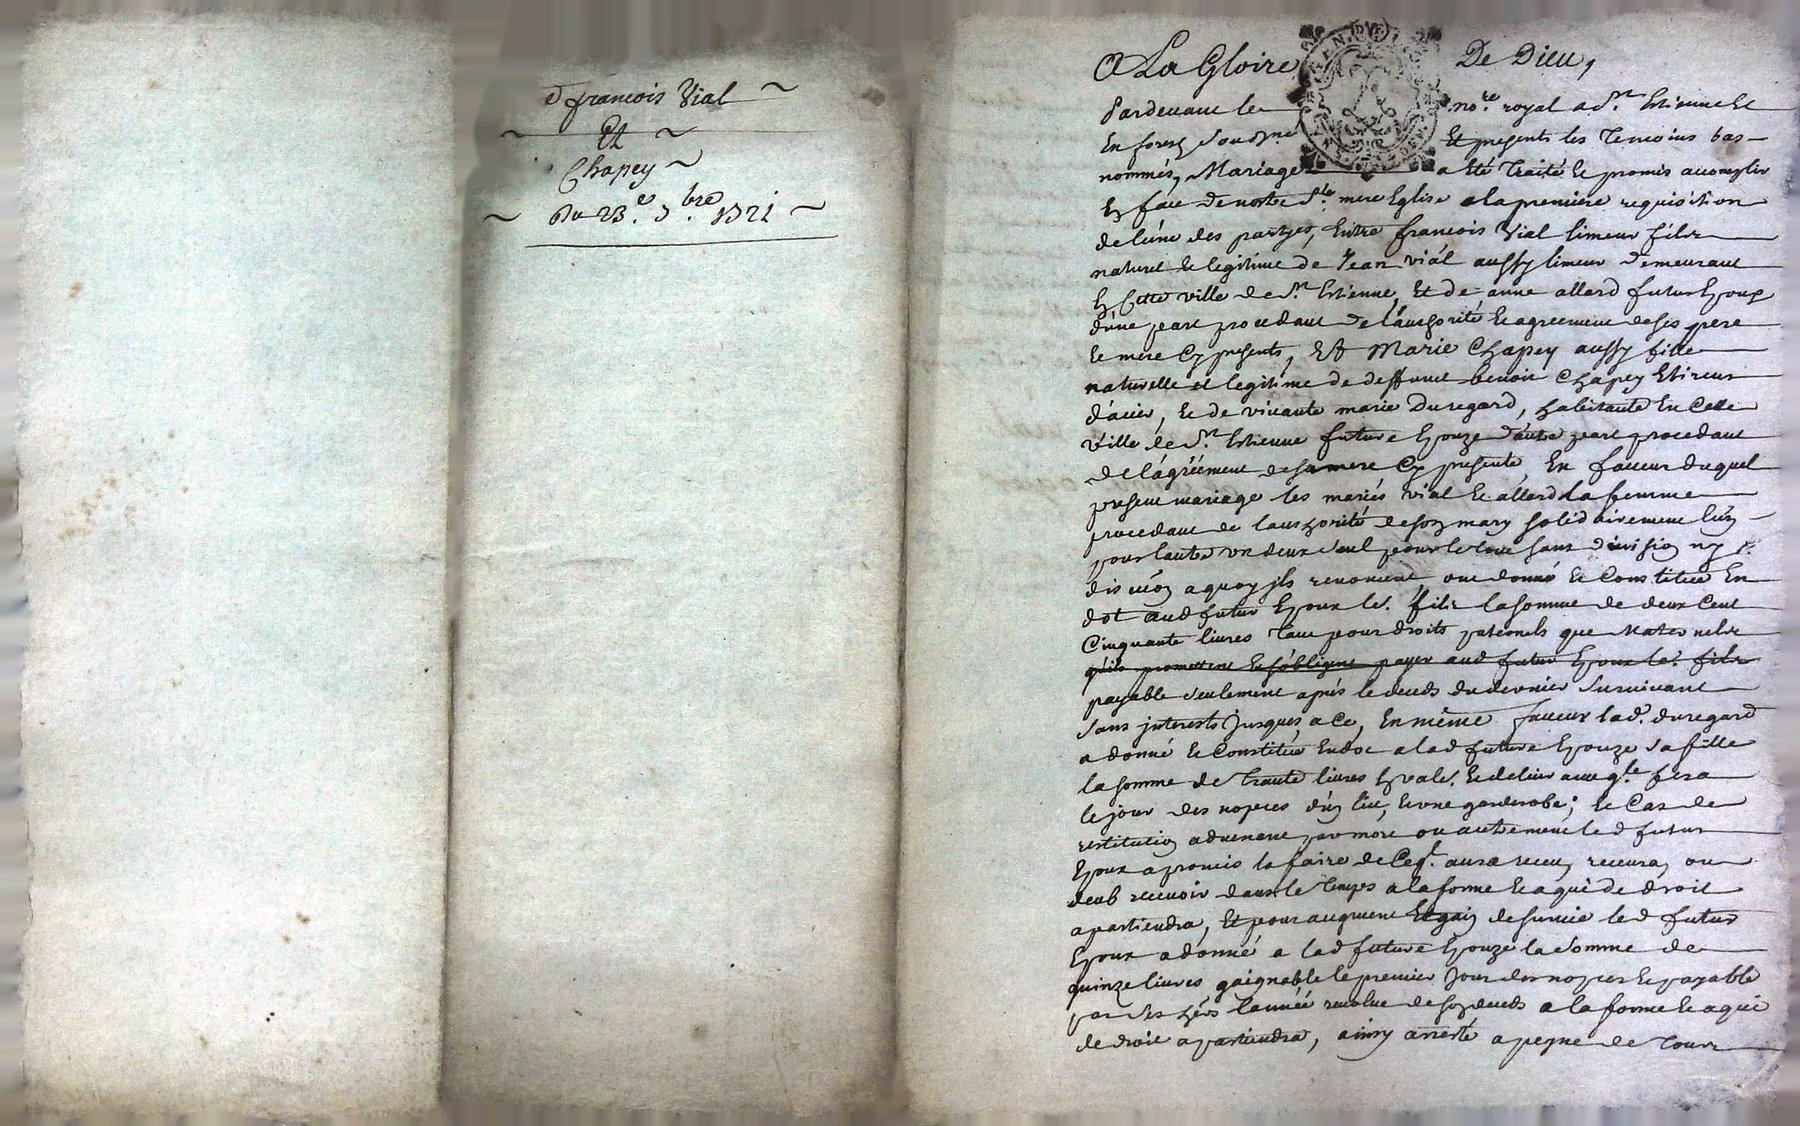 francois Vial
Et
Chapey
Du 23.e 7.bre 1721
A La Gloire De Dieu,
Pardevant le no.re royal a S.t Estienne Et
En forest soussigné Et presents les Temoins bas
nommés, Mariage a Eté Traité Et promis accomplir
En face de nostre S.te mere Eglise a la premiere requisition
de l'une des partyes, Entre francois Vial limeur fils
naturel Et legitime de Jean vial aussy limeur demeurant
En Cette ville de S.t Estienne, Et de anne allard futur Epoux
d'une part procedant de l'authorité Et agreement de ses pere
Et mere Cy presents, Et Marie Chapey aussy fille
naturelle et legitime de deffunct benoit Chapey Etireur
d'acier, Et de vivante marie Duregard, habitante En Cette
Ville de S.t Estienne future Epouze d'autre part procedant
de l'agréement de sa mere Cy presente, En faveur duquel
present mariage les mariés vial Et allard la femme
procedant de l'authorité de son mary solidairement l'un
pour l'autre un deux seul pour le tout sans division ny
discution a quoy ils renoncent, ont donné Et Constitué En
dot aud futur Epoux le.r fils la somme de deux Cent
Cinquante livres tant pour droits paternels que Maternels
qu'ils promettent Et s'obligent payer aud futur Epoux le.r fils
payable seulement après le deceds du dernier Survivant
sans interests jusques a Ce, En même faveur lad.e duregard
a donné Et Constitué En dot a lad future Epouze sa fille
la somme de Trante livres En vale.r Et deliv ance q.le fera
le jour des nopces d'un lit, Et une garderobe; Et Cas de
restitution advenant par mort ou autrement led futur
Epoux a promis la faire de Ce q.l aura receu, recevra, ou
deub recevoir dans le temps a la forme Et a qui de droit
apartiendra, Et pour augment Et gain de survie led futur
Epoux a donné a lad future Epouze la somme de
quinze livres gaignable le premier jour des nopces Et payable
par ses hers l'année revolue de son deceds a la forme Et a qui
de droit apartiendra, ainsy arresté a peyne de tous